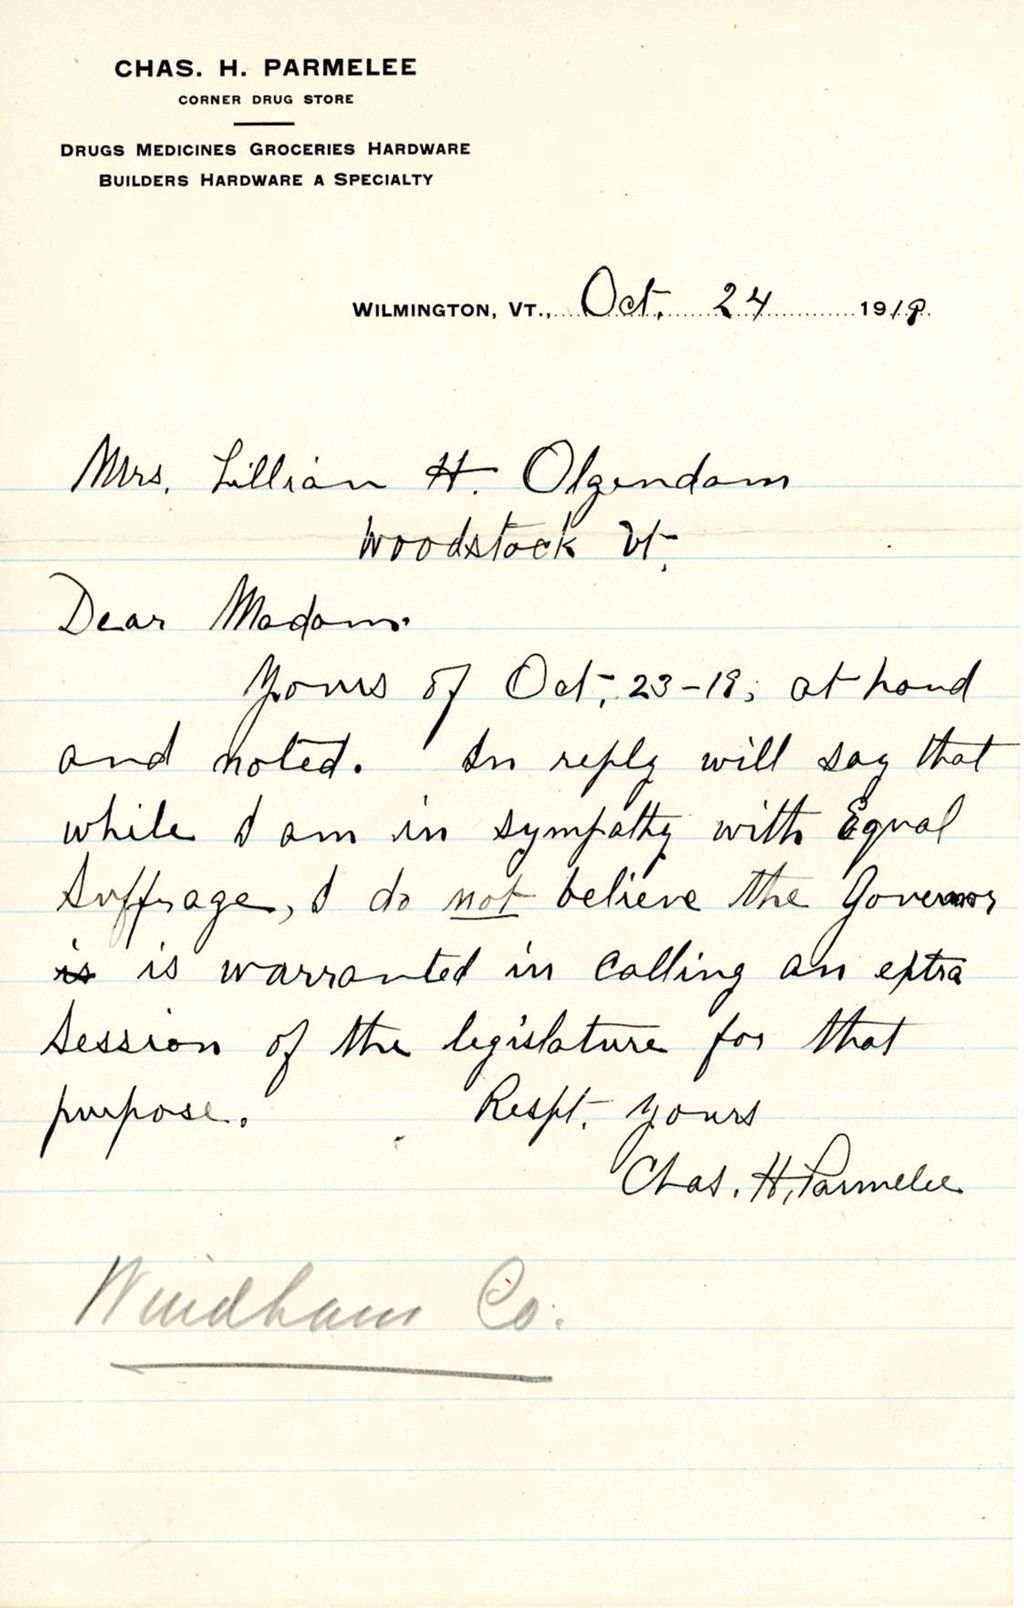 CHAS. H. PARMELEE
CORNER DRUG STORE
DRUGS MEDICINES GROCERIES HARDWARE
BUILDERS HARDWARE A SPECIALTY
WILMINGTON, VT., Oct. 24 1919.
Mrs. Lillian H. Olzendam
Woodstock Vt.
Dear Madam.
Yours of Oct. 23-19, at hand
and noted. In reply will say that
while I am in sympathy with Equal
Suffrage, I do not believe the Governor
is is warranted in calling an extra
session of the legislature for that
purpose. Respt. yours
Chas. H. Parmelee
Windham Co.